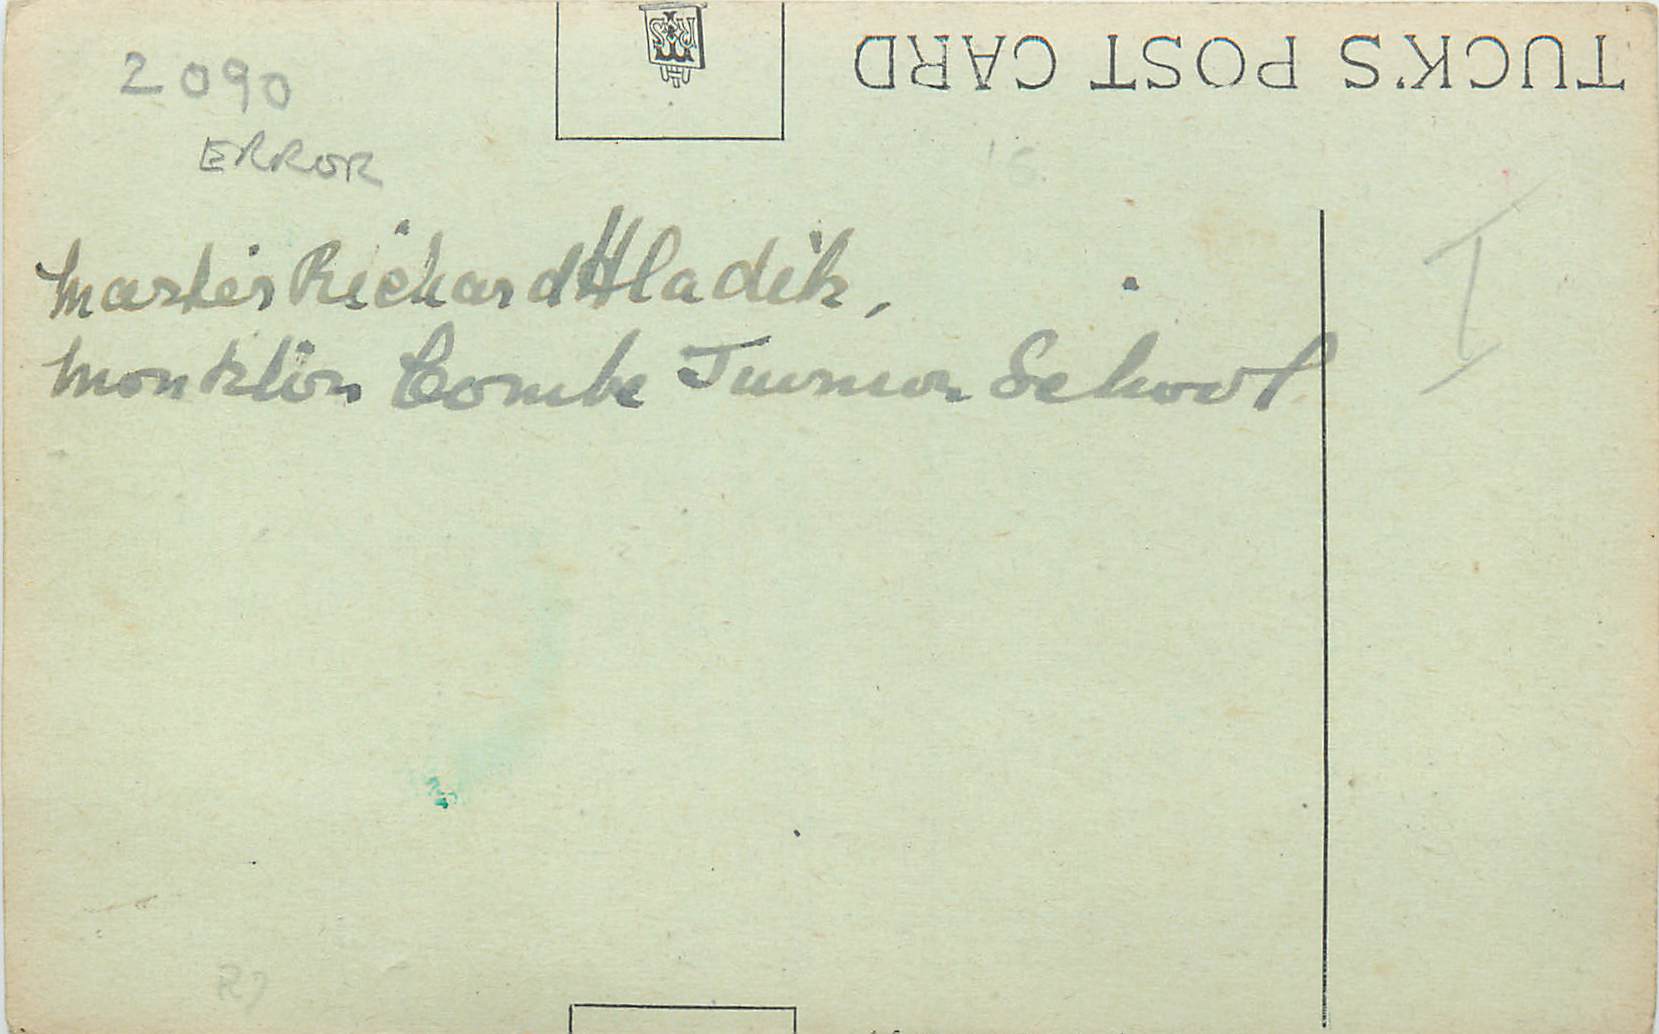 TUCK'S POST CARD
2090
ERROR
Master Richard Hladik,
Monkton Combe Junior School
I